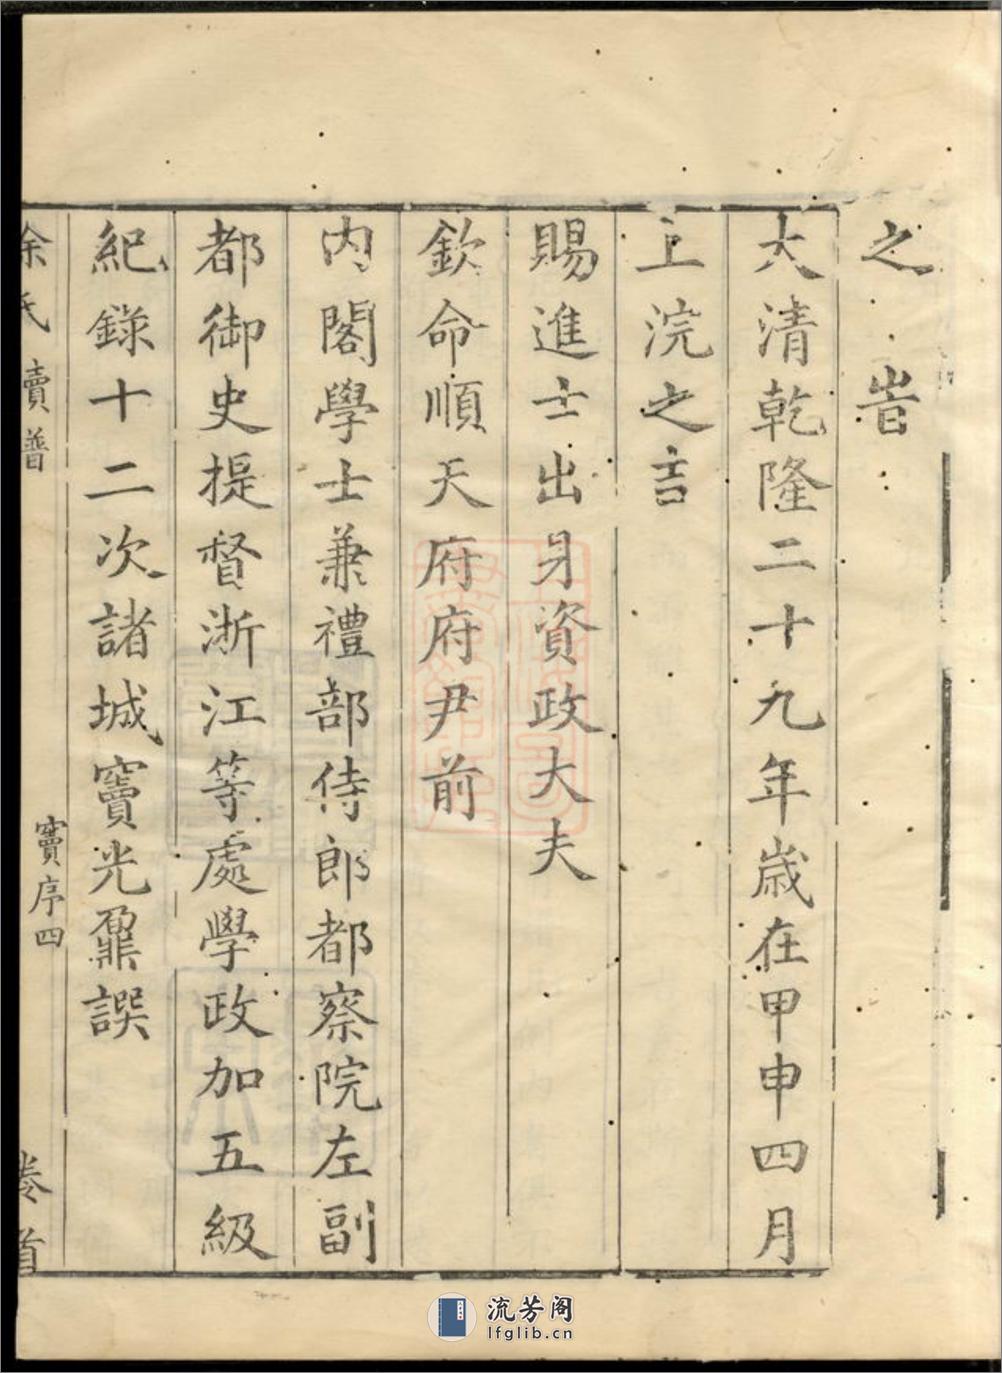 之旹
大清乾隆二十九年歲在甲申四月
上浣之吉
賜進士出身資政大夫
欽命順天府府尹前
內閣學士兼禮部侍郎都察院左副
都御史提督浙江等處學政加五級
紀錄十二次諸城竇光鼐譔
余氏續譜
竇序四
卷首
流芳阁
lfglib.cn